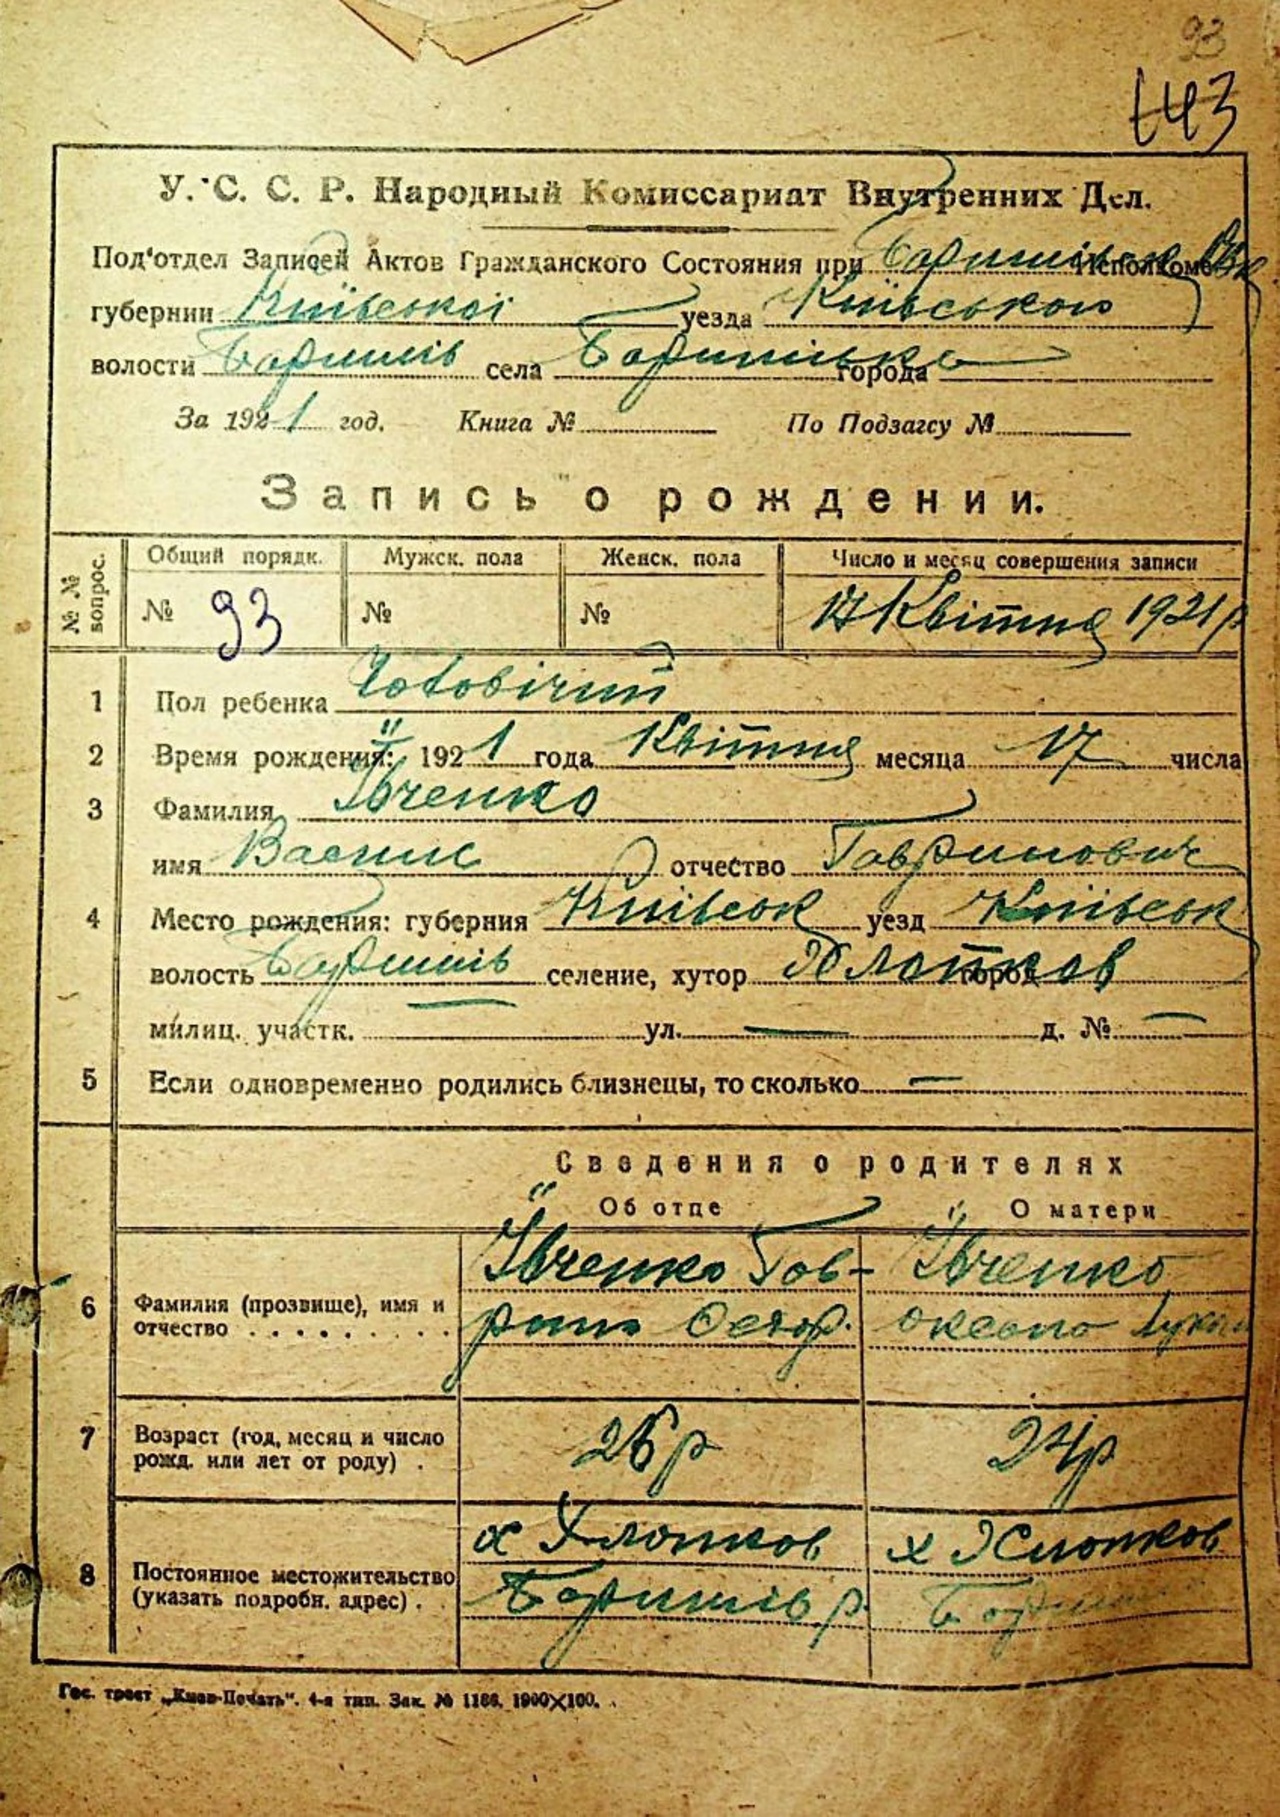 93
143
У. С. С. Р. Народный Комиссариат Внутренних Дел.
Под'отдел Записей Актов Гражданского Состояния при Исполкоме
губернии Київської уезда Київського
волости Баришів села города
За 1921 год. Книга № По Подзагсу №
Запись о рождении.
№№ вопрос. Общий порядк. Мужск. пола Женск. пола Число и месяц совершения записи
№ 93 № № 17 Квітня 1921 р
1 Пол ребенка Чоловічий
2 Время рождения: 1921 года Квітня месяца 17 числа
3 Фамилия Івченко
имя Василь отчество Гаврилович
4 Место рождения: губерния Київськ уезд Київськ
волость Баришів селение, хутор Хлопков город
милиц. участк. — ул. — д. № —
5 Если одновременно родились близнецы, то сколько —
Сведения о родителях
Об отце О матери
6 Фамилия (прозвище), имя и Івченко Гав- Івченко
отчество . . . . . . . . . . рило Оксана
7 Возраст (год, месяц и число 26 р 24 р
рожд. или лет от роду) .
8 Постоянное местожительство х Хлопков х Хлопков
(указать подробн. адрес) . Баришів р.
Гос. трест „Киев-Печать". 4-я тип. Зак. № 1186. 1900×100.